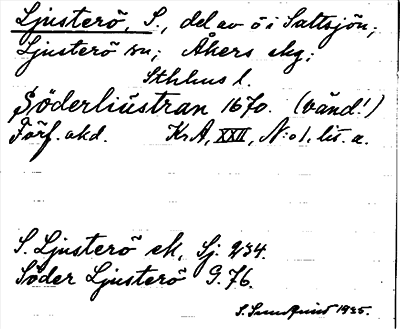 Ljusterö, S., del av ö i Saltsjön;
Ljusterö sn; Åkers skg;
Sthlms l.
Söderliústran 1670. (vänd!)
Förf. akd. KrA, XXII, N:o 1. lit. a.
S. Ljusterö ek, Sj. 234.
Söder Ljusterö G. 76.
S. Sundquist 1935.